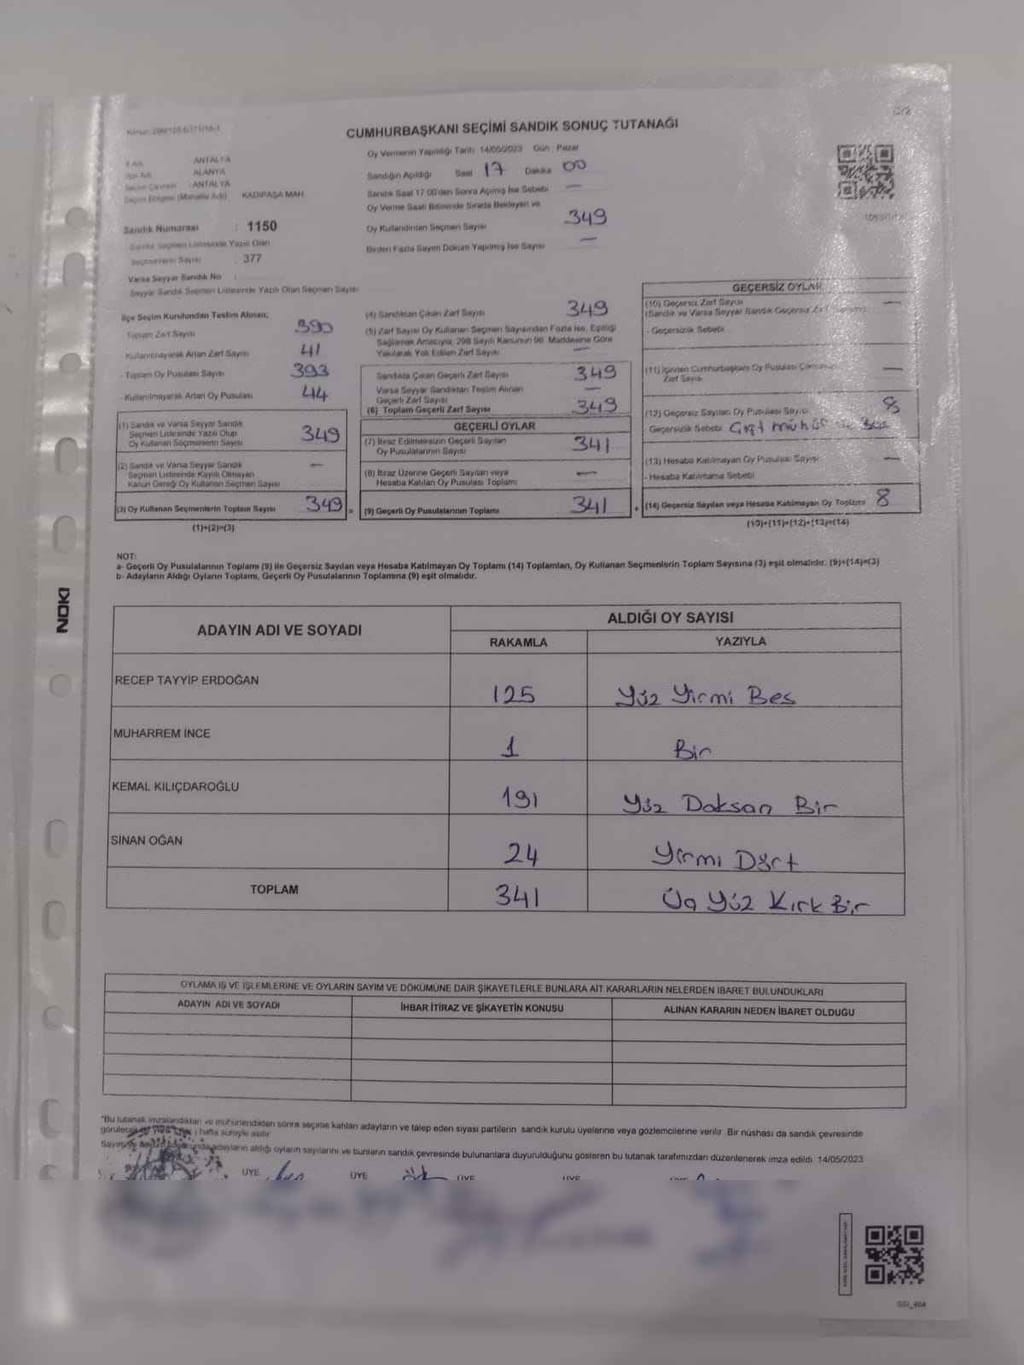 C/2
CUMHURBAŞKANI SEÇİMİ SANDIK SONUÇ TUTANAĞI
Oy Vermenin Yapıldığı Tarih: 14/05/2023 Gün: Pazar
ANTALYA
ALANYA
ANTALYA
KADIPAŞA MAH.
Sandığın Açıldığı Saat 17 Dakika 00
Sandık Saat 17:00'den Sonra Açılmış İse Sebebi —
Oy Verme Saati Bitiminde Sırada Bekleyen ve
Oy Kullandırılan Seçmen Sayısı 349
Birden Fazla Sayım Döküm Yapılmış İse Sayısı —
Sandık Numarası : 1150
Sandık Seçmen Listesinde Yazılı Olan
Seçmenlerin Sayısı 377
Varsa Seyyar Sandık No :
Seyyar Sandık Seçmen Listesinde Yazılı Olan Seçmen Sayısı:
İlçe Seçim Kurulundan Teslim Alınan;
Toplam Zarf Sayısı 390
Kullanılmayarak Artan Zarf Sayısı 41
- Toplam Oy Pusulası Sayısı 393
- Kullanılmayarak Artan Oy Pusulası 44
(1) Sandık ve Varsa Seyyar Sandık
Seçmen Listesinde Yazılı Olup
Oy Kullanan Seçmenlerin Sayısı 349
(2) Sandık ve Varsa Seyyar Sandık
Seçmen Listesinde Kayıtlı Olmayan
Kanun Gereği Oy Kullanan Seçmen Sayısı —
(3) Oy Kullanan Seçmenlerin Toplam Sayısı 349 =
(1)+(2)=(3)
(4) Sandıktan Çıkan Zarf Sayısı 349
(5) Zarf Sayısı Oy Kullanan Seçmen Sayısından Fazla İse, Eşitliği
Sağlamak Amacıyla, 298 Sayılı Kanunun 98. Maddesine Göre
Yakılarak Yok Edilen Zarf Sayısı —
Sandıkta Çıkan Geçerli Zarf Sayısı 349
Varsa Seyyar Sandıktan Teslim Alınan
Geçerli Zarf Sayısı —
(6) Toplam Geçerli Zarf Sayısı 349
GEÇERLİ OYLAR
(7) İtiraz Edilmeksizin Geçerli Sayılan
Oy Pusulalarının Sayısı 341
(8) İtiraz Üzerine Geçerli Sayılan veya
Hesaba Katılan Oy Pusulası Toplamı —
(9) Geçerli Oy Pusulalarının Toplamı 341 +
GEÇERSİZ OYLAR
(10) Geçersiz Zarf Sayısı —
(Sandık ve Varsa Seyyar Sandık Geçersiz Zarf
- Geçersizlik Sebebi
(11) İçinden Cumhurbaşkanı Oy Pusulası
Zarf Sayısı —
(12) Geçersiz Sayılan Oy Pusulası Sayısı 8
Geçersizlik Sebebi
(13) Hesaba Katılmayan Oy Pusulası Sayısı —
- Hesaba Katılmama Sebebi
(14) Geçersiz Sayılan veya Hesaba Katılmayan Oy Toplamı 8
(10)+(11)+(12)+(13)=(14)
NOT:
a- Geçerli Oy Pusulalarının Toplamı (9) ile Geçersiz Sayılan veya Hesaba Katılmayan Oy Toplamı (14) Toplamları, Oy Kullanan Seçmenlerin Toplam Sayısına (3) eşit olmalıdır. (9)+(14)=(3)
b- Adayların Aldığı Oyların Toplamı, Geçerli Oy Pusulalarının Toplamına (9) eşit olmalıdır.
NOKI
ADAYIN ADI VE SOYADI ALDIĞI OY SAYISI
RAKAMLA YAZIYLA
RECEP TAYYİP ERDOĞAN 125 Yüz Yirmi Beş
MUHARREM İNCE 1 Bir
KEMAL KILIÇDAROĞLU 191 Yüz Doksan Bir
SİNAN OĞAN 24 Yirmi Dört
TOPLAM 341 Üç Yüz Kırk Bir
OYLAMA İŞ VE İŞLEMLERİNE VE OYLARIN SAYIM VE DÖKÜMÜNE DAİR ŞİKAYETLERLE BUNLARA AİT KARARLARIN NELERDEN İBARET BULUNDUKLARI
ADAYIN ADI VE SOYADI İHBAR İTİRAZ VE ŞİKAYETİN KONUSU ALINAN KARARIN NEDEN İBARET OLDUĞU
*Bu tutanak imzalandıktan ve mühürlendikten sonra seçime katılan adayların ve talep eden siyasi partilerin sandık kurulu üyelerine veya gözlemcilerine verilir. Bir nüshası da sandık çevresinde
adayların aldığı oyların sayılarını ve bunların sandık çevresinde bulunanlara duyurulduğunu gösteren bu tutanak tarafımızdan düzenlenerek imza edildi. 14/05/2023
ÜYE ÜYE ÜYE ÜYE